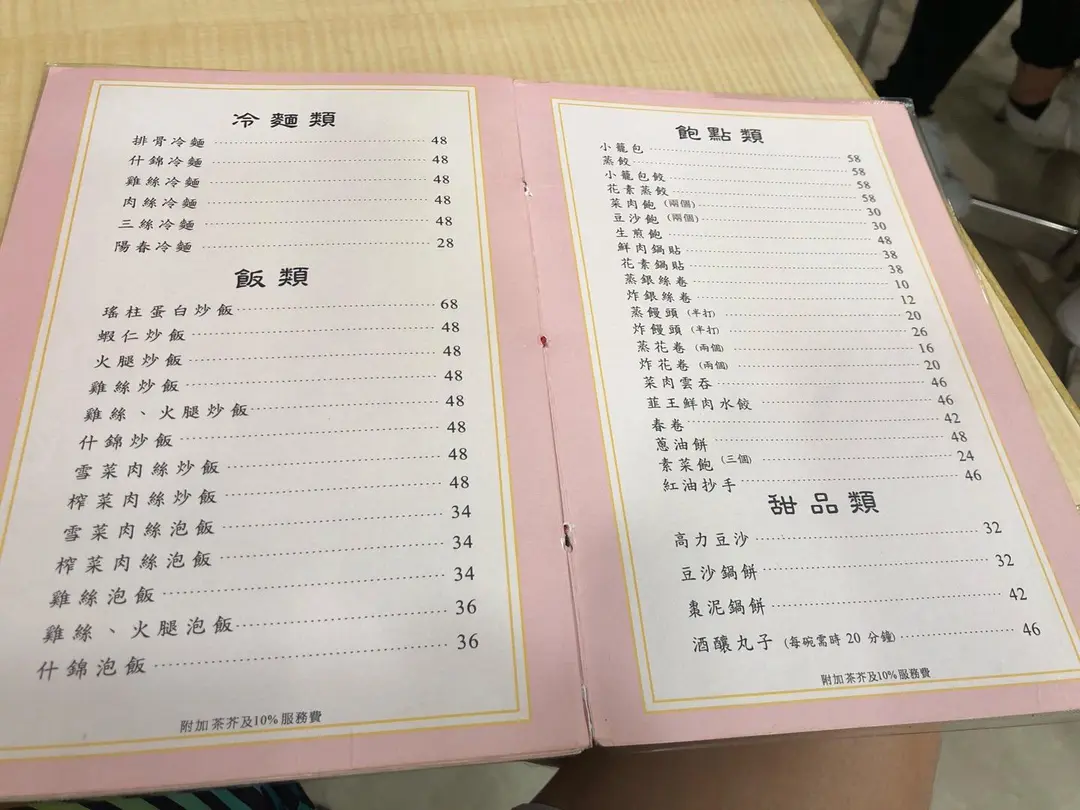 冷麵類
排骨冷麵 48
什錦冷麵 48
雞絲冷麵 48
肉絲冷麵 48
三絲冷麵 48
陽春冷麵 28
飯類
瑤柱蛋白炒飯 68
蝦仁炒飯 48
火腿炒飯 48
雞絲炒飯 48
雞絲、火腿炒飯 48
什錦炒飯 48
雪菜肉絲炒飯 48
榨菜肉絲炒飯 48
雪菜肉絲泡飯 34
榨菜肉絲泡飯 34
雞絲泡飯 34
雞絲、火腿泡飯 36
什錦泡飯 36
附加茶芥及10%服務費
飽點類
小籠包 58
蒸餃 58
小籠包餃 58
花素蒸餃 58
菜肉飽 (兩個) 30
豆沙飽 (兩個) 30
生煎飽 48
鮮肉鍋貼 38
花素鍋貼 38
蒸銀絲卷 10
炸銀絲卷 12
蒸饅頭 (半打) 20
炸饅頭 (半打) 26
蒸花卷 (兩個) 16
炸花卷 (兩個) 20
菜肉雲吞 46
韮王鮮肉水餃 46
春卷 42
蔥油餅 48
素菜飽 (三個) 24
紅油抄手 46
甜品類
高力豆沙 32
豆沙鍋餅 32
棗泥鍋餅 42
酒釀丸子 (每碗需時 20 分鐘) 46
附加茶芥及10%服務費